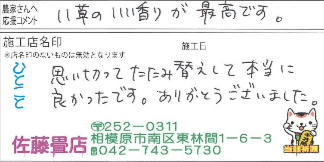 農家さんへ
応援コメント
い草のいい香りが最高です。
施工店名印
※店名印のないものは無効となります
施工日
ひとこと
思い切ってたたみ替えして本当に
良かったです。ありがとうございました。
佐藤畳店
〒252-0311
相模原市南区東林間1-6-3
☎042-743-5730